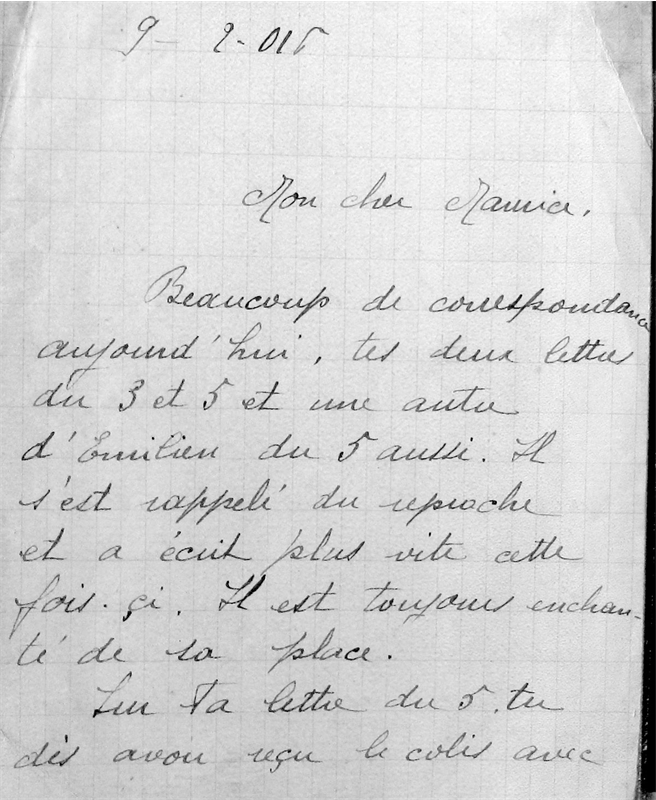 9 - 2 - 015
Mon cher Maurice,
Beaucoup de correspondance
aujourd'hui, tes deux lettres
du 3 et 5 et une autre
d'Emilien du 5 aussi. Il
s'est rappelé du reproche
et a écrit plus vite cette
fois-çi. Il est toujours enchan-
té de sa place.
Sur ta lettre du 5, tu
dis avoir reçu le colis avec